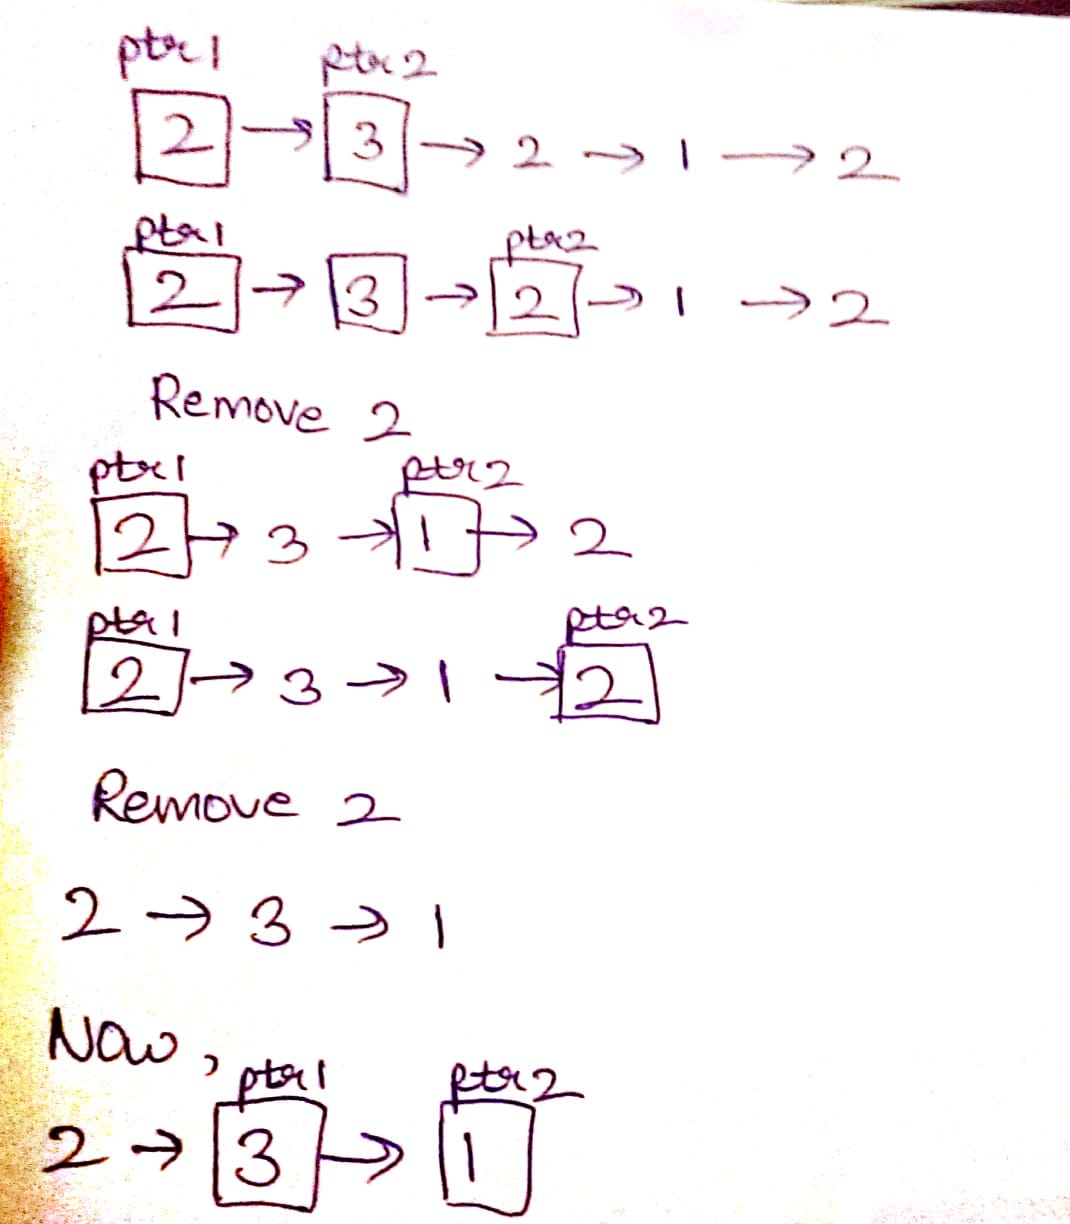 ptr1 ptr2
2 → 3 → 2 → 1 → 2
ptr1 ptr2
2 → 3 → 2 → 1 → 2
Remove 2
ptr1 ptr2
2 → 3 → 1 → 2
ptr1 ptr2
2 → 3 → 1 → 2
Remove 2
2 → 3 → 1
Now,
ptr1 ptr2
2 → 3 → 1